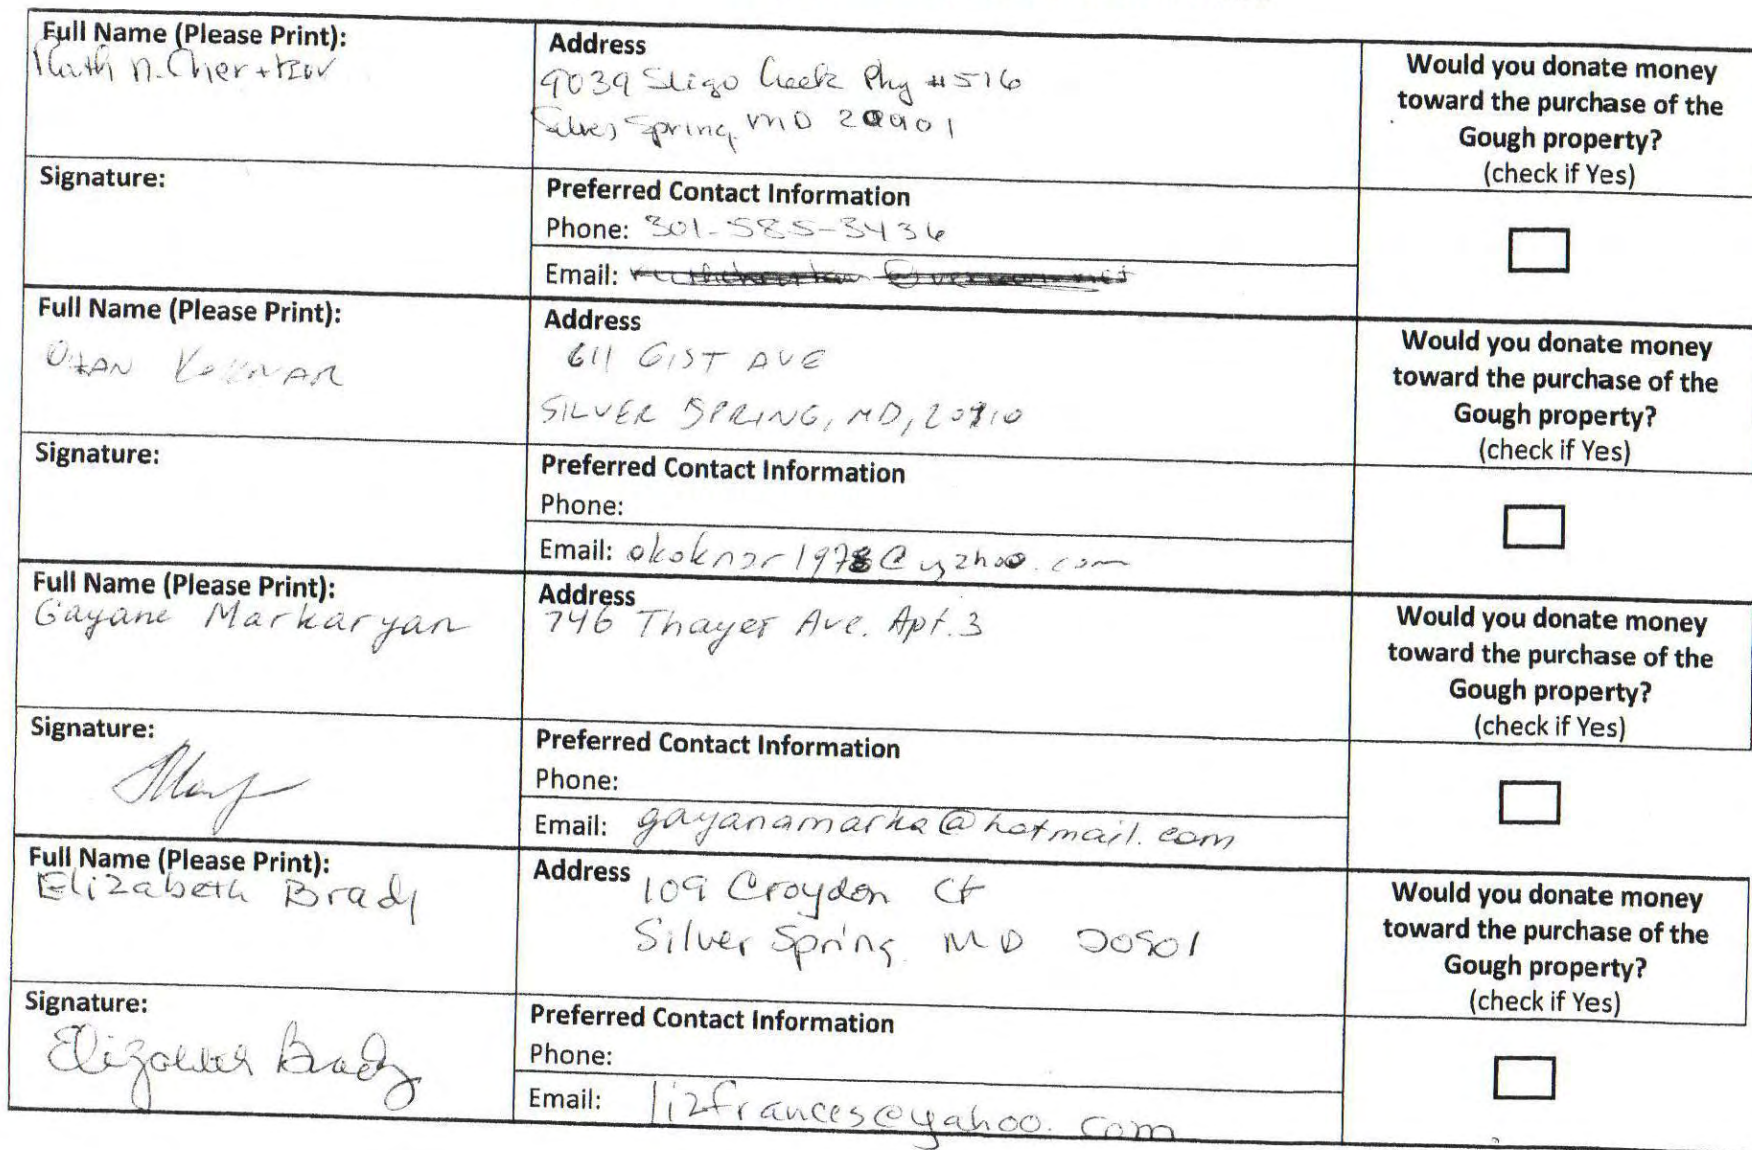 Full Name (Please Print):
n.
Address
9039 Sligo Creek Pky #516
Silver Spring MD 20901
Would you donate money
toward the purchase of the
Gough property?
(check if Yes)
Signature:
Preferred Contact Information
Phone: 301-585-3436
Email:
Full Name (Please Print):
Address
611 GIST AVE
SILVER SPRING, MD, 20910
Would you donate money
toward the purchase of the
Gough property?
(check if Yes)
Signature:
Preferred Contact Information
Phone:
Email: okoknar1978@yahoo.com
Full Name (Please Print):
Gayane Markaryan
Address
746 Thayer Ave. Apt. 3
Would you donate money
toward the purchase of the
Gough property?
(check if Yes)
Signature:
Preferred Contact Information
Phone:
Email: gayanamarka@hotmail.com
Full Name (Please Print):
Elizabeth Brady
Address
109 Croydon Ct
Silver Spring MD 20901
Would you donate money
toward the purchase of the
Gough property?
(check if Yes)
Signature:
Elizabeth Brady
Preferred Contact Information
Phone:
Email: lizfrances@yahoo.com